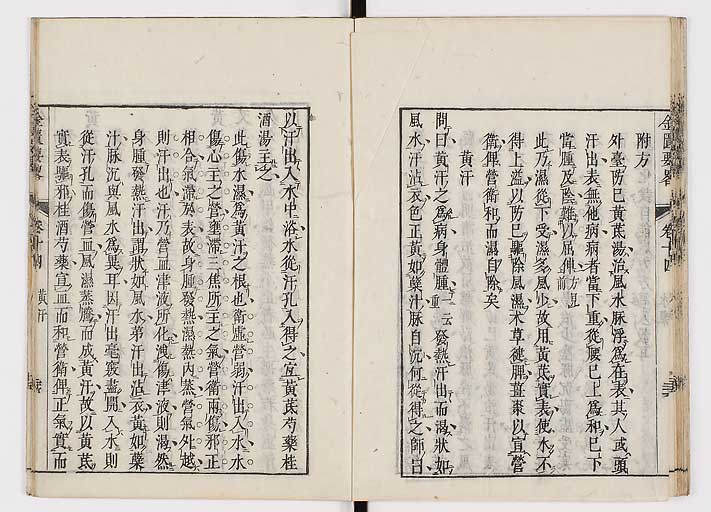 附方
外臺防已黃芪湯治風水脉浮爲在表其人或頭
汗出表無他病病者當下重從腰已上爲和已下
當腫及陰難以屈伸
此乃濕從下受濕多風少故用黃芪實表使水不
得上溢以防已驅除風濕术草健脾薑棗以宣營
衛俾營衛和而濕自除矣
黃汗
問曰黃汗之爲病身體腫一云重發熱汗出而渴狀如
風水汗沾衣色正黃如蘗汁脉自沉何從得之師曰
金匱要畧
卷十四
以汗出入水中浴水從汗孔入得之宜黃芪芍藥桂
酒湯主之
此傷水濕爲黃汗之根也衛虛營弱汗出入水水
傷心主之營壅滯三焦所主之氣營衛兩傷邪正
相合氣滯於表故身腫發熱濕熱內蒸營氣外越
則汗出也汗乃營血津液所化洩傷津液則渴然
身腫發熱汗出謂狀如風水第汗出沾衣黃如蘗
汁脉沉與風水爲異耳因汗出毫竅盡開入水則
從汗孔而傷營血風濕蒸騰而成黃汗故以黃芪
實表驅邪桂酒芍藥宣血而和營衛俾正氣實而
金匱要畧
卷十四
黃汗